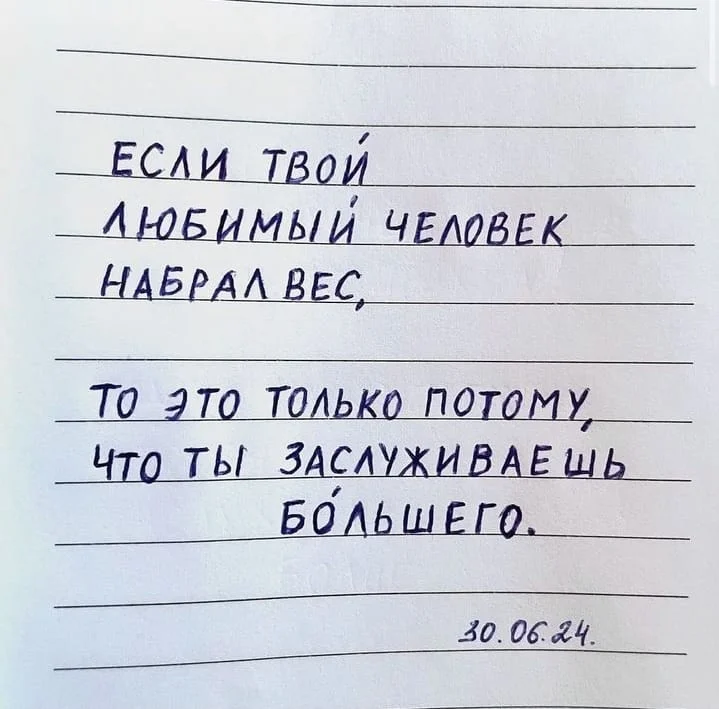 ЕСЛИ ТВОЙ
ЛЮБИМЫЙ ЧЕЛОВЕК
НАБРАЛ ВЕС,
ТО ЭТО ТОЛЬКО ПОТОМУ,
ЧТО ТЫ ЗАСЛУЖИВАЕШЬ
БО́ЛЬШЕГО.
30.06.24.